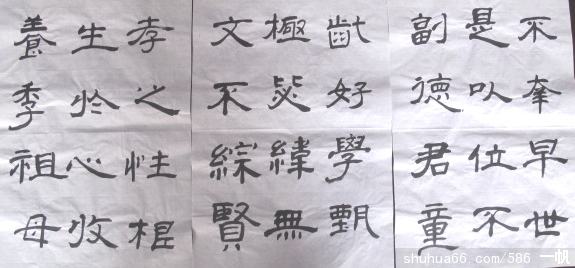 不幸早世
是以位不
副德君童
齔好學甄
極毖緯無
文不綜賢
孝之性根
生於心收
養季祖母
shuhua66.com/586 一帆